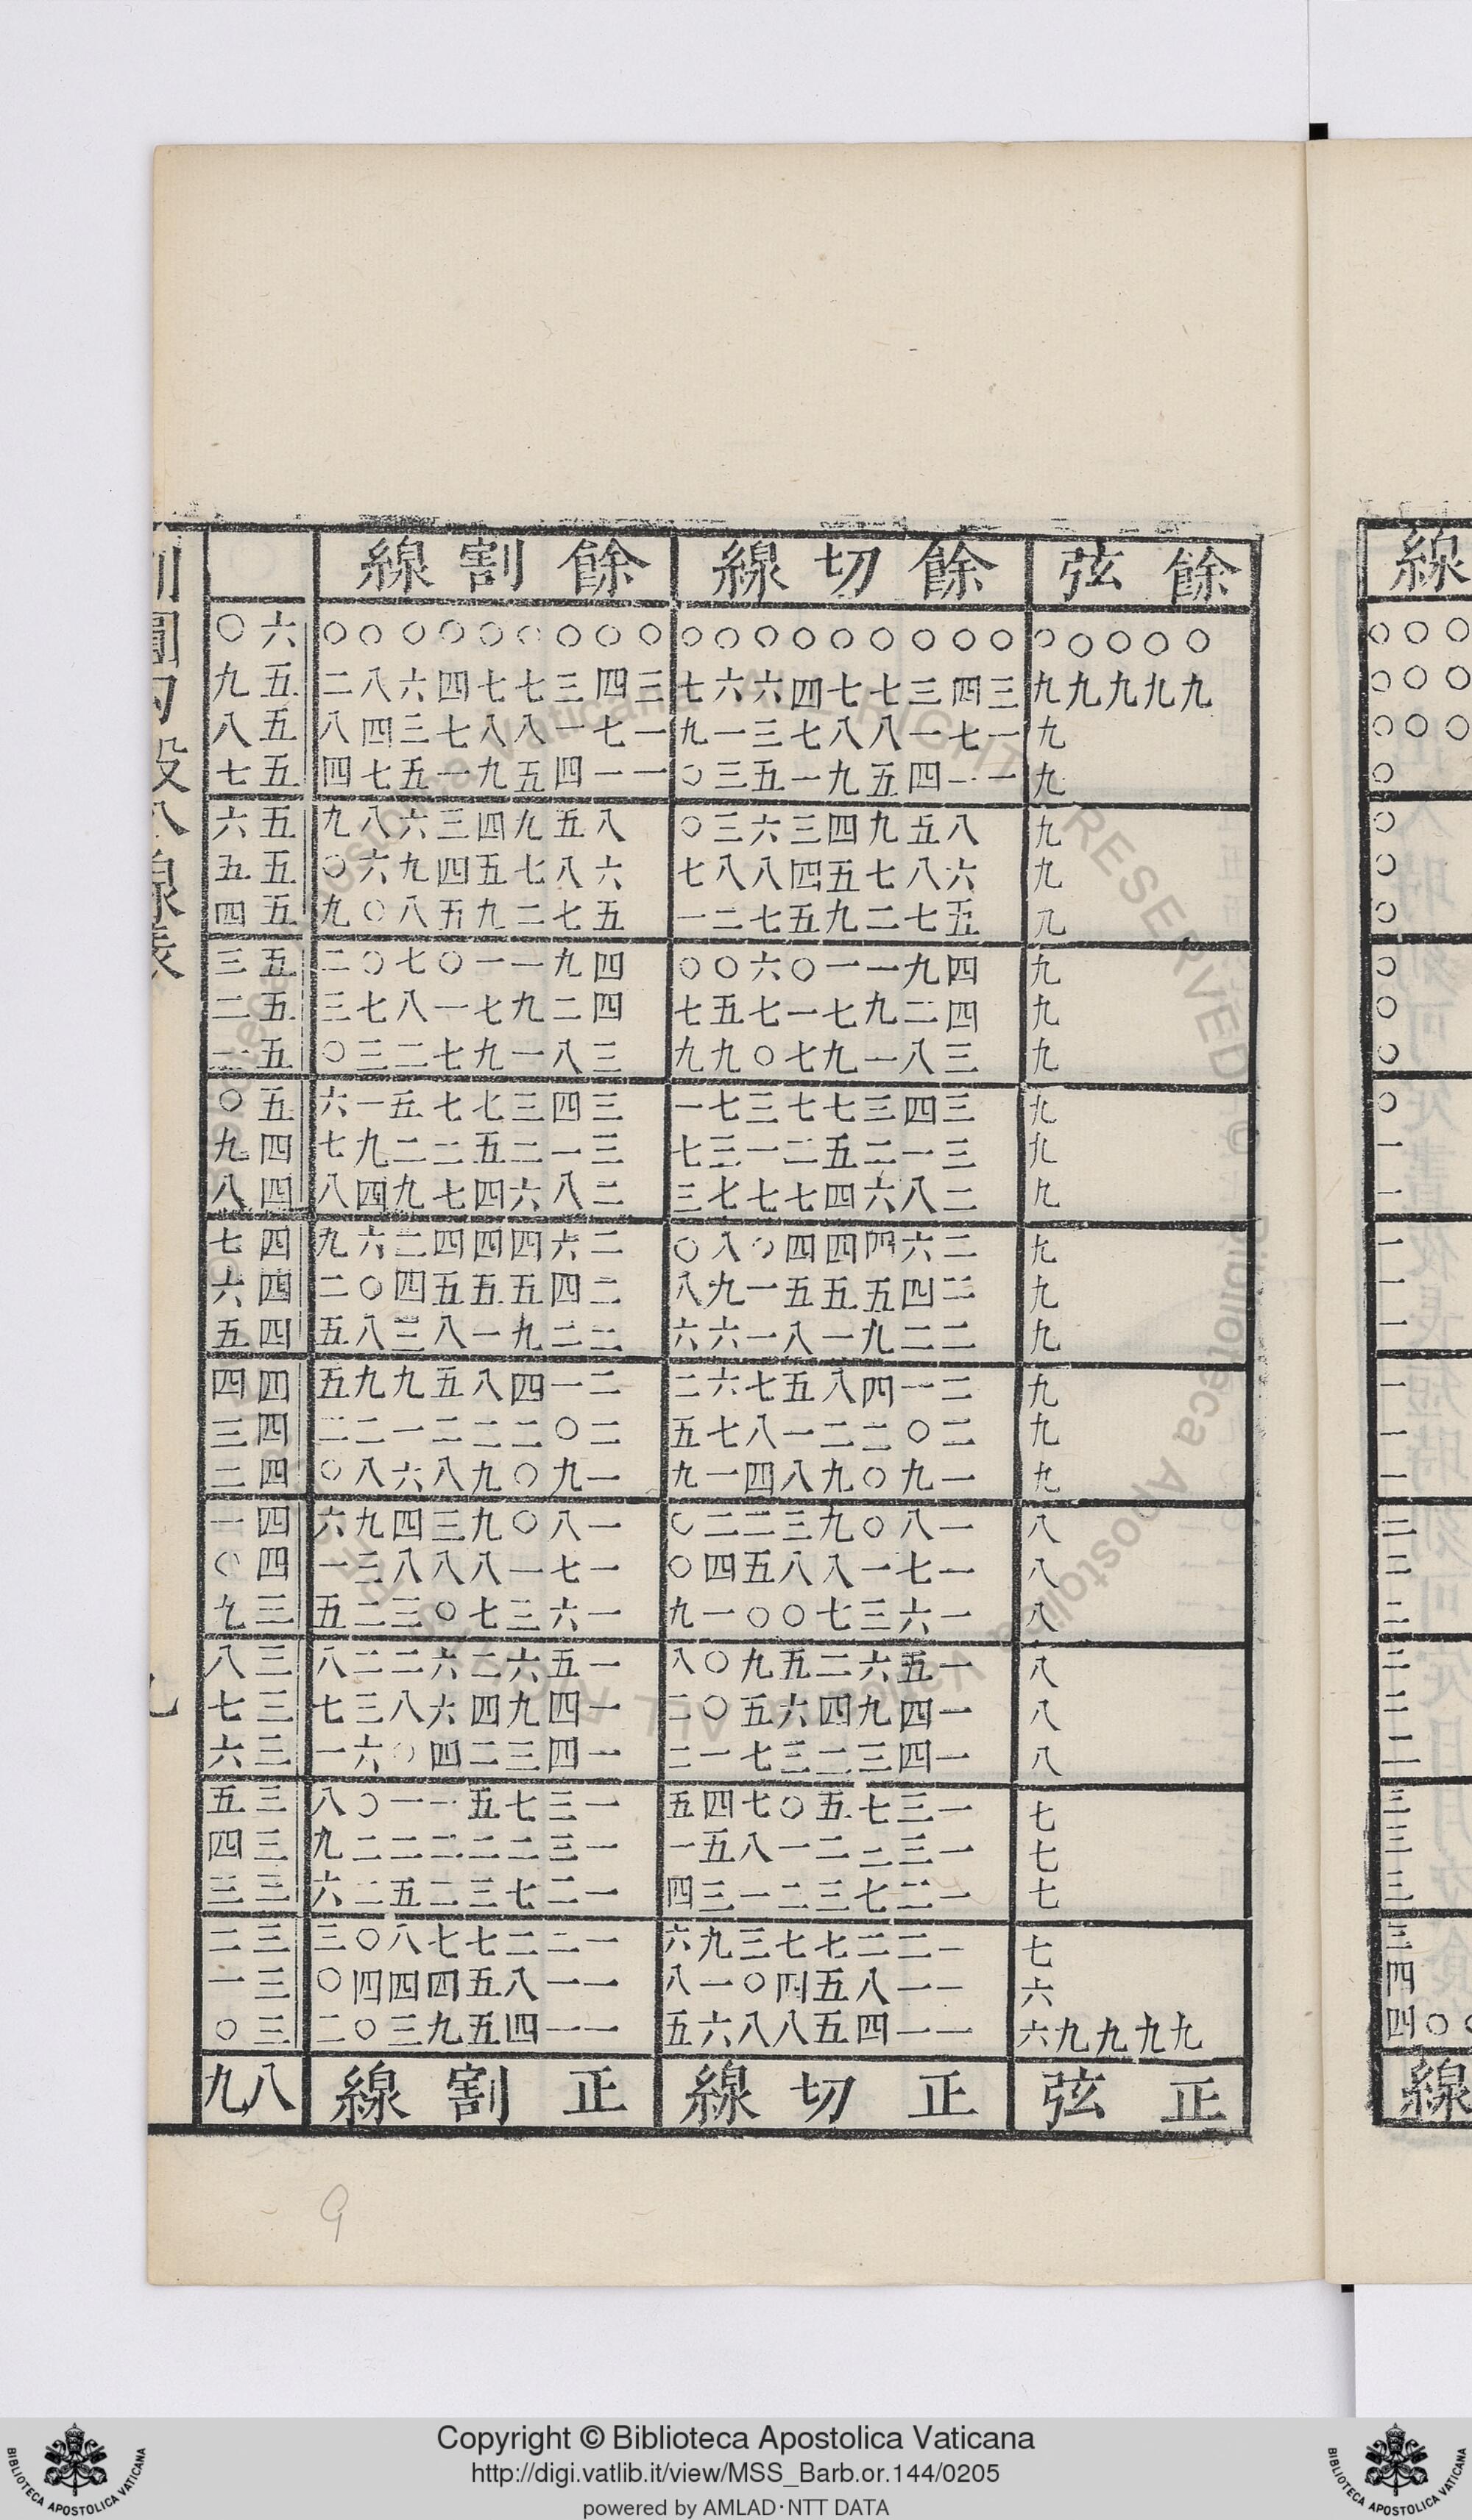 餘弦 餘切線 餘割線
○○○○○ ○○○○○○○○○ ○○○○○○○○○ 六○
九九九九九 三四三七七四六六七 三四三七七四六八二 五九
九 一七一八八七三一九 一七一八八七三四八 五八
九 一一四五九一五三○ 一一四五九一五七四 五七
九 八五九四三六三○ 八五九四三六八九 五六
九 六八七五四八八七 六八七五四九六○ 五五
九 五七二九五七二一 五七二九五八○九 五四
九 四九一一○六○○ 四九一一○七○二 五三
九 四二九七一七五七 四二九七一八七三 五二
九 三八一九七○九九 三八一九七二三○ 五一
九 三四三七七三七一 三四三七七五一六 五○
九 三一二五二一三七 三一二五二二九七 四九
九 二八六四七七七三 二八六四七九四八 四八
九 二六四四四○八○ 二六四四四二六九 四七
九 二四五五五一九八 二四五五五四○二 四六
九 二二九一八一六六 二二九一八三八五 四五
九 二一四八五七六二 二一四八五九九五 四四
九 二○二二一八七五 二○二二二一二二 四三
九 一九○九八四一九 一九○九八六八○ 四二
八 一八○九三二二○ 一八○九三四九六 四一
八 一七一八八五四○ 一七一八八八三一 四○
八 一六三七○○一九 一六三七○三二五 三九
八 一五六二五九○八 一五六二六二二八 三八
八 一四九四六五○二 一四九四六八三七 三七
八 一四三二三七一二 一四三二四○六一 三六
七 一三七五○七四五 一三七五一一○八 三五
七 一三二二一八五一 一三二二二二二九 三四
七 一二七三二一三四 一二七三二五二六 三三
七 一二二七七三九六 一二二七七八○三 三二
六 一一八五四○一八 一一八五四四四○ 三一
九九九九六 一一四五八八六五 一一四五九三○二 三○
正弦 正切線 正割線 八九
圓勾股八線表
線
線
9
Copyright © Biblioteca Apostolica Vaticana
http://digi.vatlib.it/view/MSS_Barb.or.144/0205
powered by AMLAD·NTT DATA